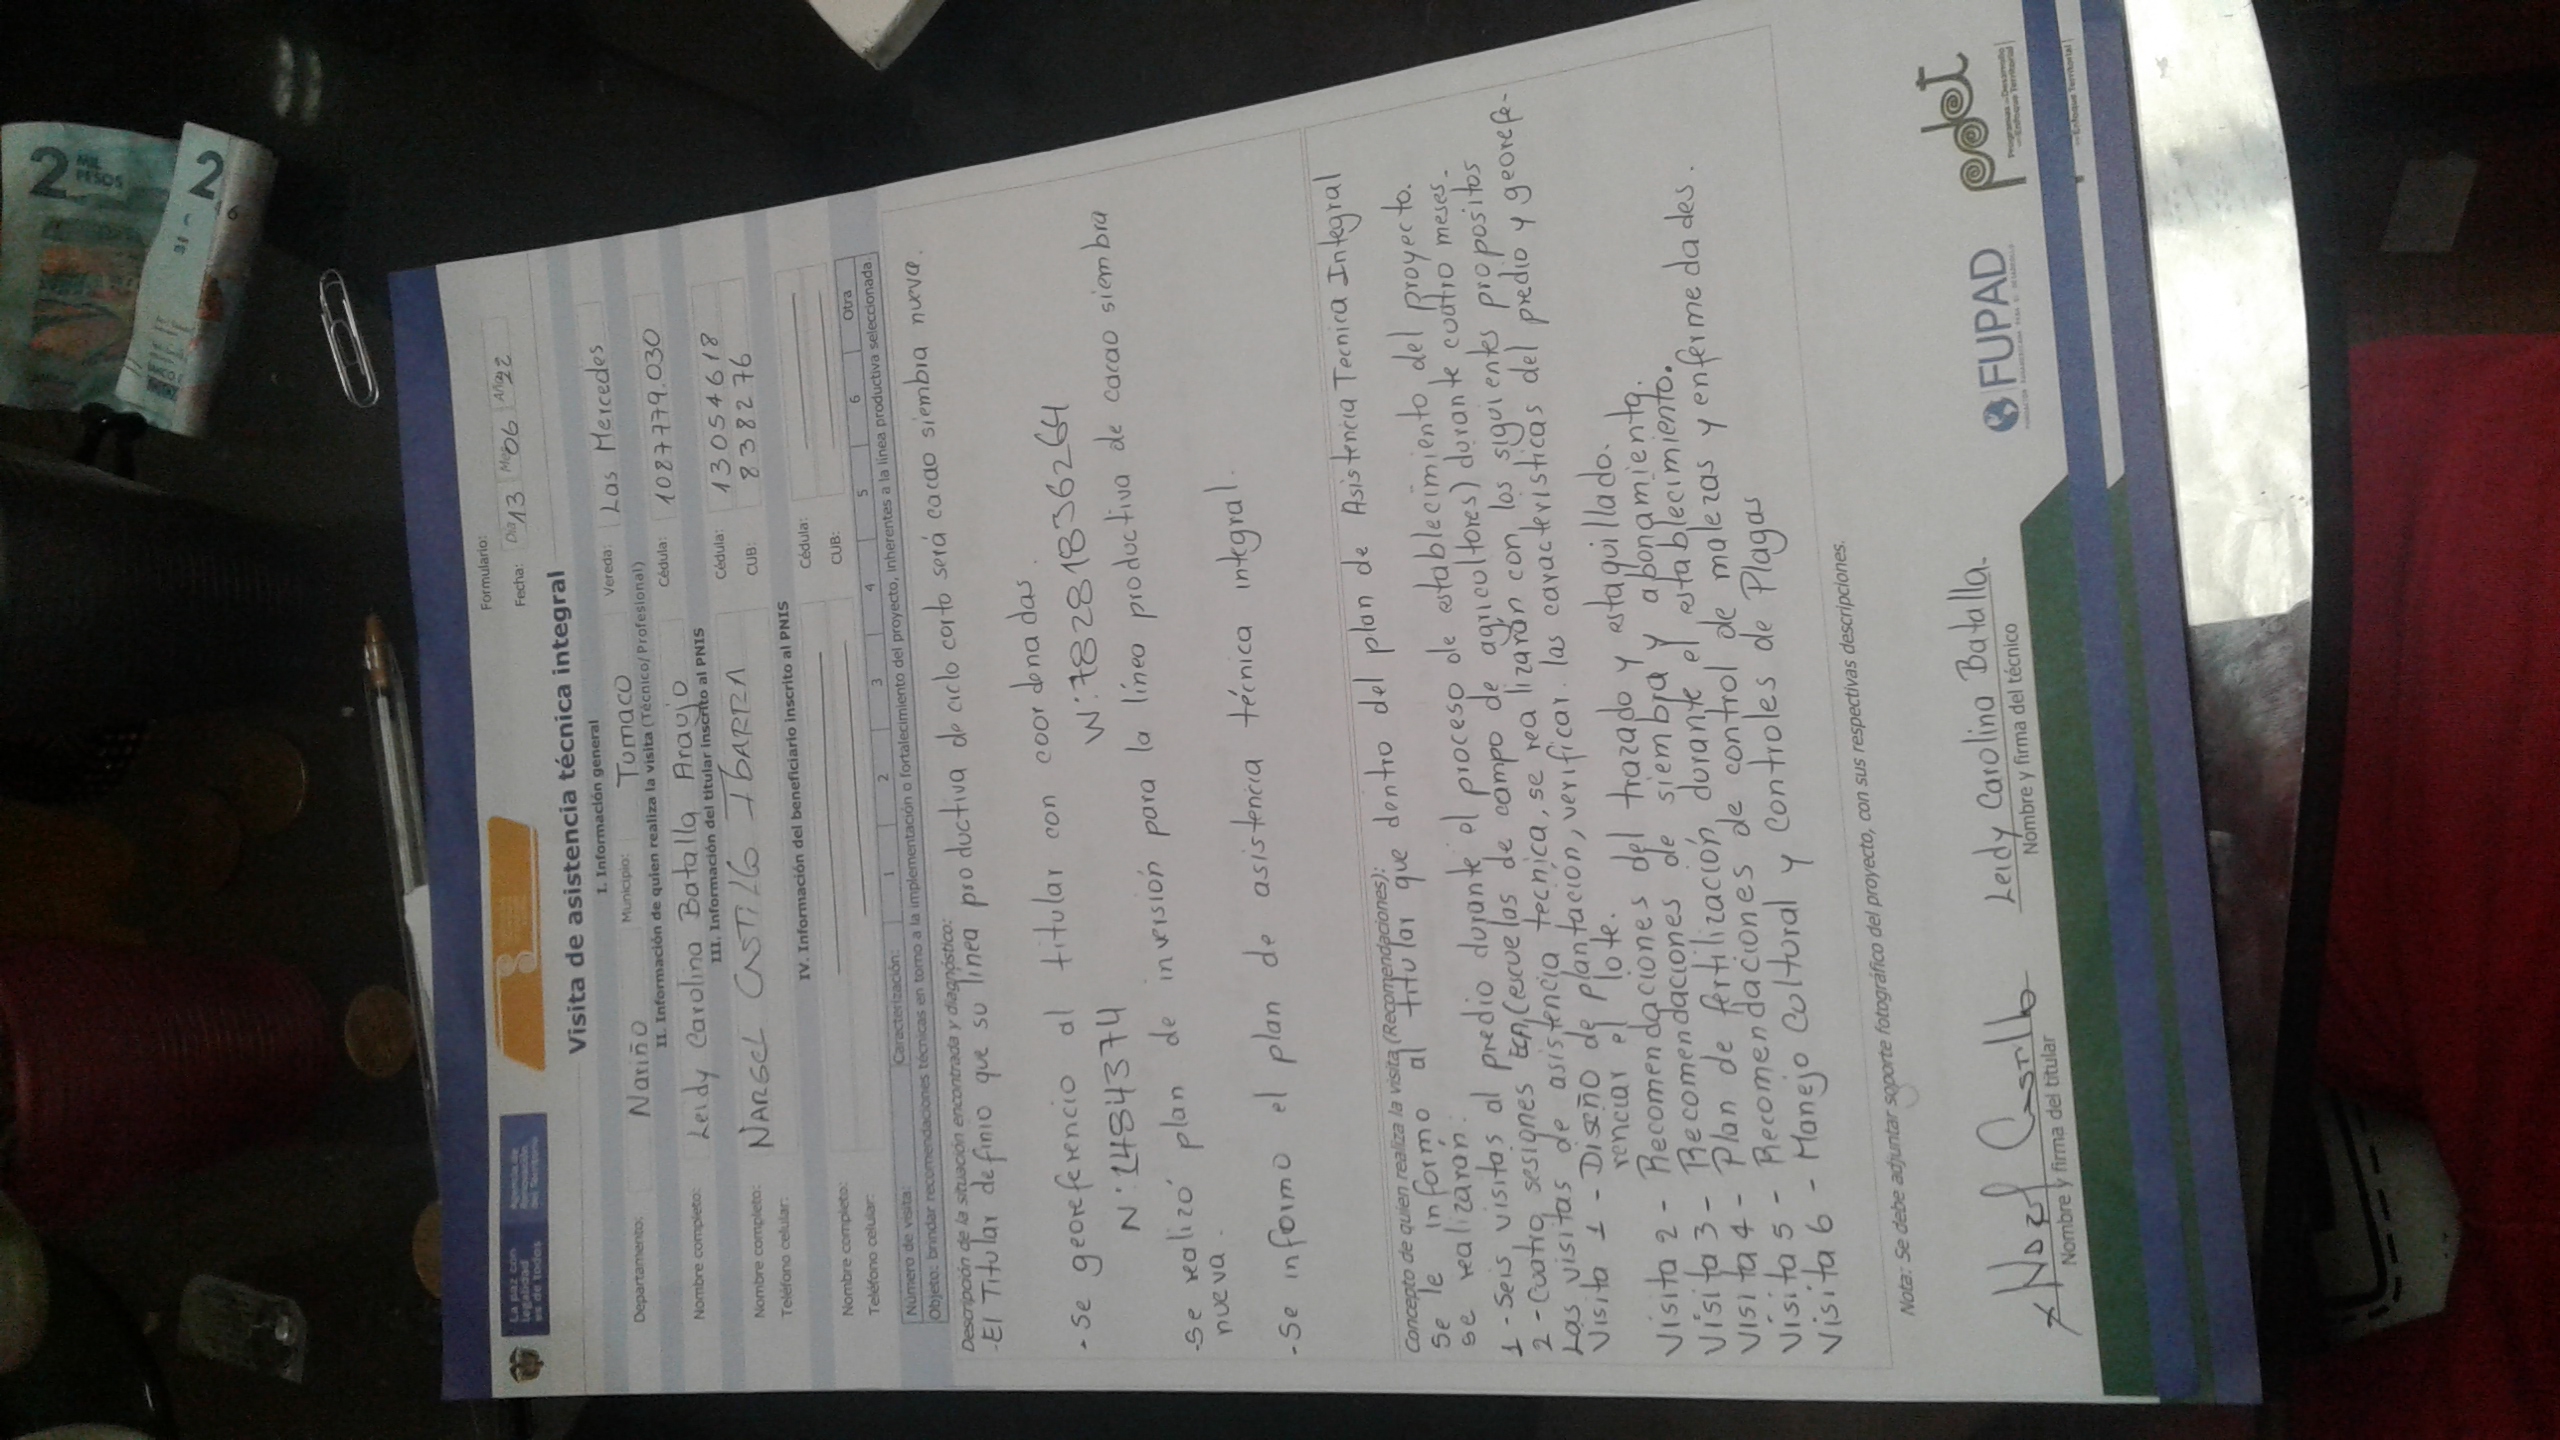 La paz con
legalidad
es de todos
Agencia de
Renovación
del Territorio
Formulario:
Fecha: Día 13 Mes 06 Año 22
Visita de asistencia técnica integral
I. Información general
Departamento: Nariño Municipio: Tumaco Vereda: Las Mercedes
II. Información de quien realiza la visita (Técnico/Profesional)
Nombre completo: Leidy Carolina Batalla Araujo Cédula: 1087779.030
III. Información del titular inscrito al PNIS
Nombre completo: NARGEL CASTILLO IBARRA Cédula: 13054618
Teléfono celular: CUB: 8382276
IV. Información del beneficiario inscrito al PNIS
Nombre completo: Cédula:
Teléfono celular: CUB:
Número de visita: Caracterización: 1 2 3 4 5 6 Otra
Objeto: brindar recomendaciones técnicas en torno a la implementación o fortalecimiento del proyecto, inherentes a la línea productiva seleccionada
Descripción de la situación encontrada y diagnóstico:
-El Titular definio que su línea productiva de ciclo corto será cacao siembra nueva.
-Se georeferencio al titular con coordenadas.
N: 1.4843374 W:78.281836264
-Se realizó plan de inversión para la línea productiva de cacao siembra
nueva.
-Se informo el plan de asistencia técnica integral.
Concepto de quien realiza la visita (Recomendaciones):
Se le informo al titular que dentro del plan de Asistencia Tecnica Integral
se realizarán:
1 - Seis visitas al predio durante el proceso de establecimiento del proyecto.
2 - Cuatro sesiones ECA (escuelas de campo de agricultores) durante cuatro meses.
Las visitas de asistencia tecnica, se realizarán con los siguientes propositos
Visita 1 - Diseño de plantación, verificar las caracteristicas del predio y georefe-
renciar el lote.
Visita 2 - Recomendaciones del trazado y estaquillado.
Visita 3 - Recomendaciones de siembra y abonamiento.
Visita 4 - Plan de fertilización durante el establecimiento.
Visita 5 - Recomendaciones de control de malezas y enfermedades.
Visita 6 - Manejo Cultural y Controles de Plagas
Nota: Se debe adjuntar soporte fotográfico del proyecto, con sus respectivas descripciones.
Nargel Castillo
Nombre y firma del titular
Leidy Carolina Batalla.
Nombre y firma del técnico
FUPAD
pdet
Programas de Desarrollo
con Enfoque Territorial
2 MIL
PESOS
2